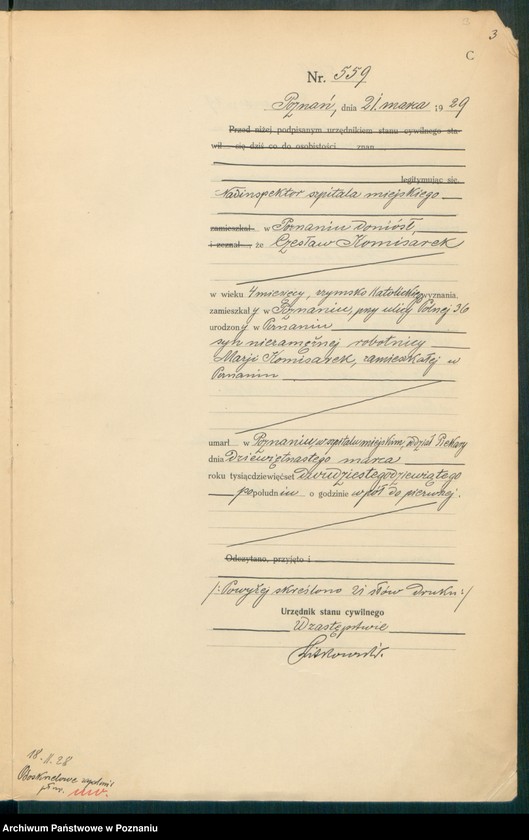 3
C
Nr. 559
Poznań, dnia 21. marca 1929
Przed niżej podpisanym urzędnikiem stanu cywilnego sta-
wił się dziś co do osobistości znan
legitymując się
Nadinspektor szpitala miejskiego
zamieszkał w Poznaniu doniósł,
i zeznał, że Czesław Komisarek
w wieku 4 miesięcy, rzymsko katolickiego wyznania,
zamieszkały w Poznaniu, przy ulicy Polnej 36
urodzony w Poznaniu
syn niezamężnej robotnicy
Marji Komisarek, zamieszkałej w
Poznaniu
umarł w Poznaniu, w szpitalu miejskim, oddział Piekary
dnia dziewiętnastego marca
roku tysiącdziewięćset dwudziestego dziewiątego
po południu o godzinie w pół do pierwszej.
Odczytano, przyjęto i
/: Powyżej skreślono 21 słów druku :/
Urzędnik stanu cywilnego
W zastępstwie
18. 28
Archiwum Państwowe w Poznaniu